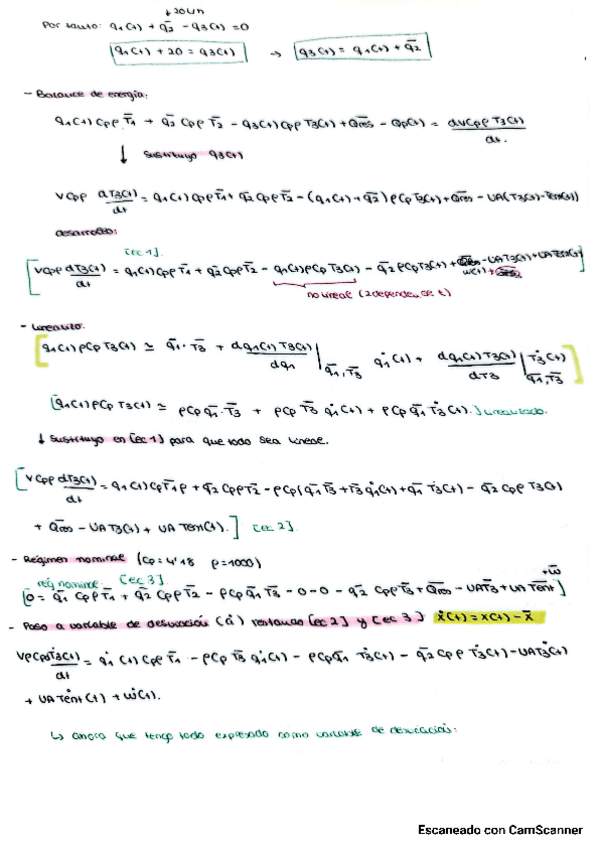 ↓20 L/h
Por tanto: q1(t) + q̄2 - q3(t) = 0
q1(t) + 20 = q3(t) → q3(t) = q1(t) + q̄2
- Balance de energía:
q1(t) Cpρ T̄1 + q̄2 Cpρ T̄2 - q3(t) Cpρ T3(t) + Q̄res - Qp(t) = dVCpρ T3(t) / dt.
↓ Sustituyo q3(t)
VCpρ dT3(t)/dt = q1(t) Cpρ T̄1 + q̄2 Cpρ T̄2 - (q1(t) + q̄2) ρCp T3(t) + Q̄res - UA(T3(t) - Text(t))
desarrollo:
[ec 1].
[VCpρ dT3(t)/dt = q1(t) Cpρ T̄1 + q̄2 Cpρ T̄2 - q1(t) ρCp T3(t) - q̄2 ρCp T3(t) + - UAT3(t) + UA Text(t)]
w(t) +
no lineal (2 dependen de t)
- Linealizo:
[q1(t) ρCp T3(t) ≃ q̄1 · T̄3 + dq1(t) T3(t)/dq1 |q̄1, T̄3 q̇1(t) + dq1(t) T3(t)/dT3 |q̄1, T̄3 Ṫ3(t)]
[q1(t) ρCp T3(t) ≃ ρCp q̄1 · T̄3 + ρCp T̄3 q̇1(t) + ρCp q̄1 Ṫ3(t).] Linealizado.
↓ Sustituyo en [ec 1] para que todo sea lineal.
[VCpρ dT3(t)/dt = q1(t) Cp T̄1 ρ + q̄2 Cpρ T̄2 - ρCp (q̄1 T̄3 + T̄3 q̇1(t) + q̄1 Ṫ3(t) - q̄2 Cpρ T3(t)
+ Q̄res - UA T3(t) + UA Text(t).] [ec 2].
- Régimen nominal (Cp = 4'18 ρ = 1000)
reg nominal: [ec 3].
[0 = q̄1 Cpρ T̄1 + q̄2 Cpρ T̄2 - ρCp q̄1 T̄3 - 0 - 0 - q̄2 Cpρ T̄3 + Q̄res - UAT̄3 + UA T̄ext + w̄]
- Paso a variable de desviación (ẋ) restando [ec 2] y [ec 3] ẋ(t) = x(t) - x̄
VρCp Ṫ3(t)/dt = q̇1(t) Cpρ T̄1 - ρCp T̄3 q̇1(t) - ρCp q̄1 Ṫ3(t) - q̄2 Cpρ Ṫ3(t) - UA Ṫ3(t)
+ UA Ṫext(t) + ẇ(t).
↳ ahora que tengo todo expresado como variable de desviación:
Escaneado con CamScanner